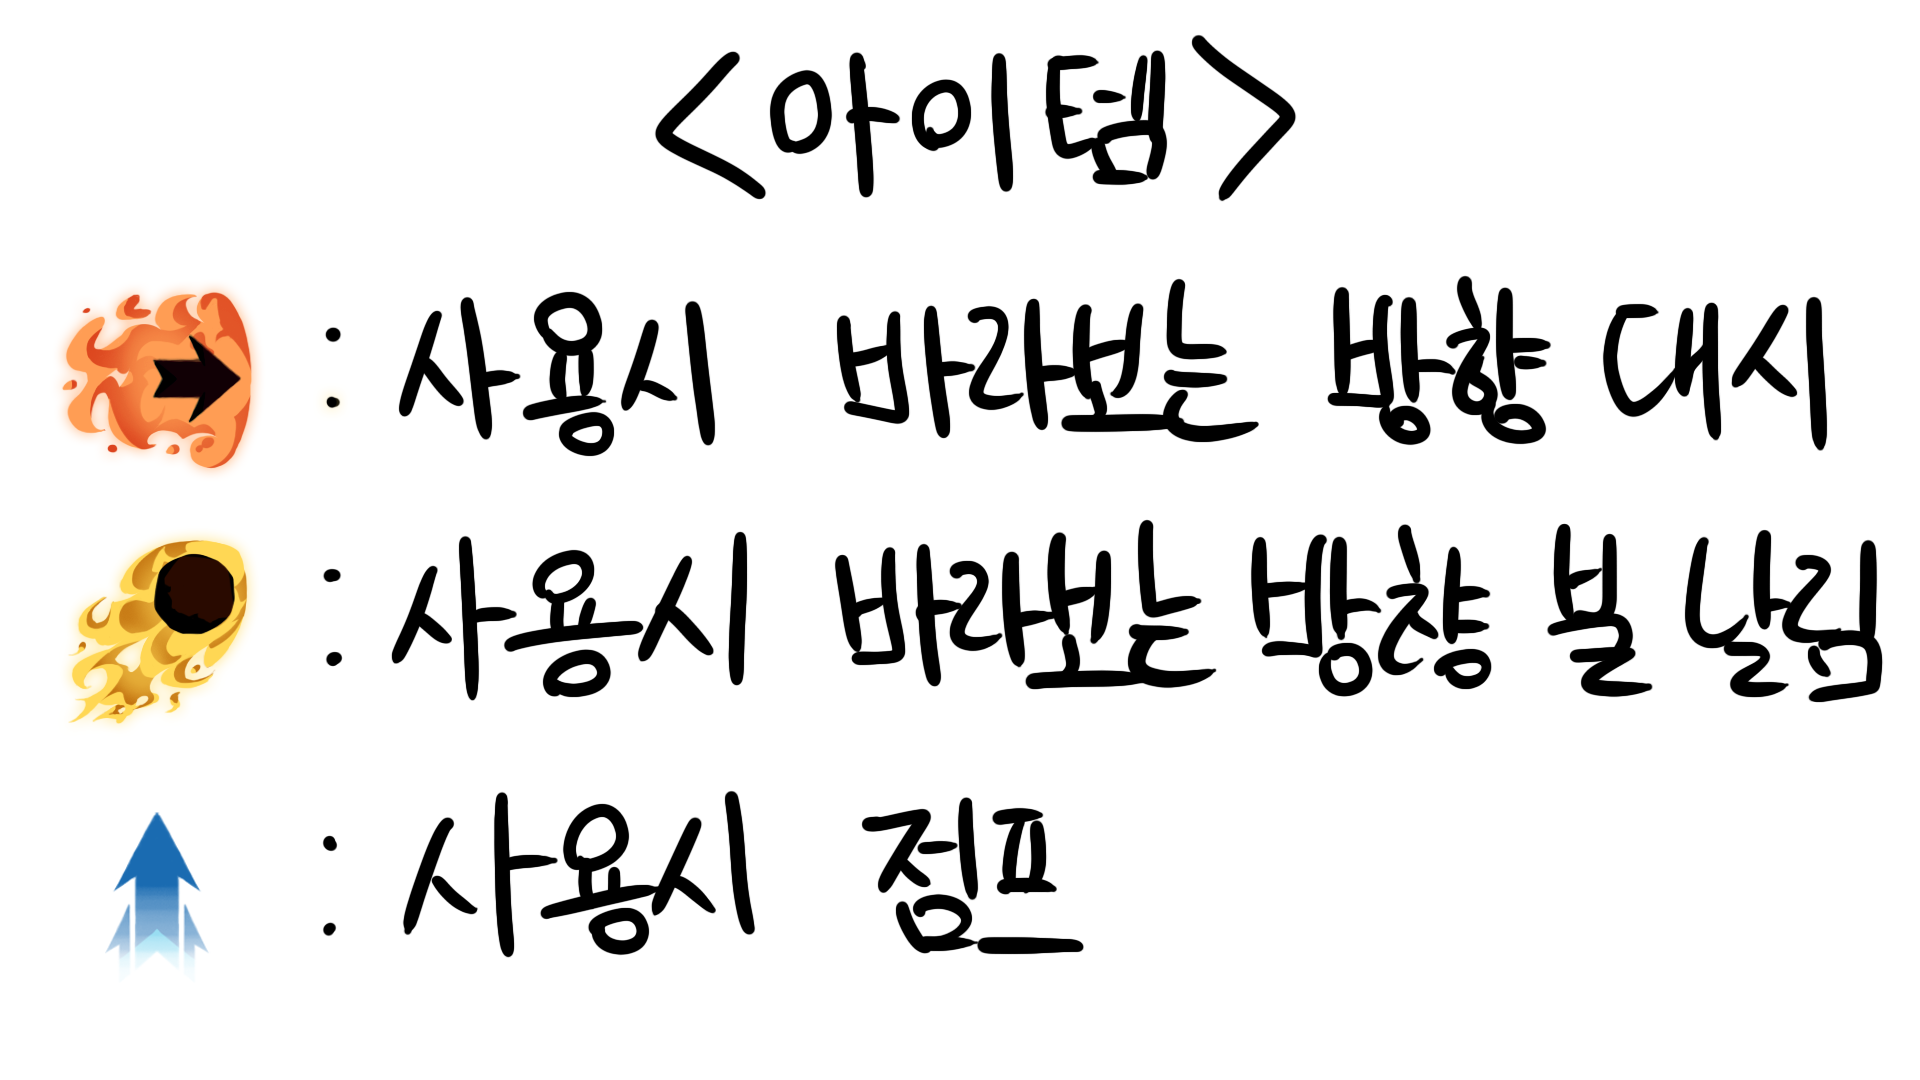 <아이템>
: 사용시 바라보는 방향 대시
: 사용시 바라보는 방향 볼 날림
: 사용시 점프